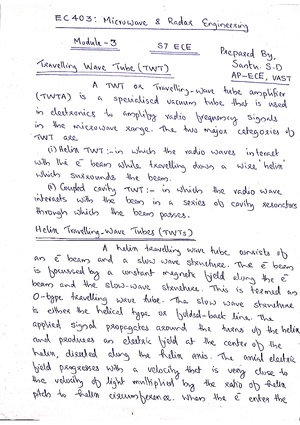 EC403: Microwave & Radar Engineering
Module - 3 S7 ECE
Prepared By,
Santu. S.D
AP-ECE, VAST
Travelling Wave Tube (TWT)
A TWT or Travelling-wave tube amplifier
(TWTA) is a specialised vacuum tube that is used
in electronics to amplify radio frequency signals
in the microwave range. The two major categories of
TWT are
(i) Helix TWT :- in which the radio waves interact
with the e⁻ beam while travelling down a wire 'helix'
which surrounds the beam.
(ii) Coupled cavity TWT :- in which the radio wave
interacts with the beam in a series of cavity resonators
through which the beam passes.
Helix Travelling-Wave Tubes (TWTs)
A helix travelling wave tube consists of
an e⁻ beam and a slow wave structure. The e⁻ beam
is focussed by a constant magnetic field along the e⁻
beam and the slow-wave structure. This is termed as
O-type travelling wave tube. The slow wave structure
is either the helical type or folded-back line. The
applied signal propagates around the turns of the helix
and produces an electric field at the center of the
helix, directed along the helix axis. The axial electric
field progresses with a velocity that is very close to
the velocity of light multiplied by the ratio of helix
pitch to helix circumference. When the e⁻ enter the